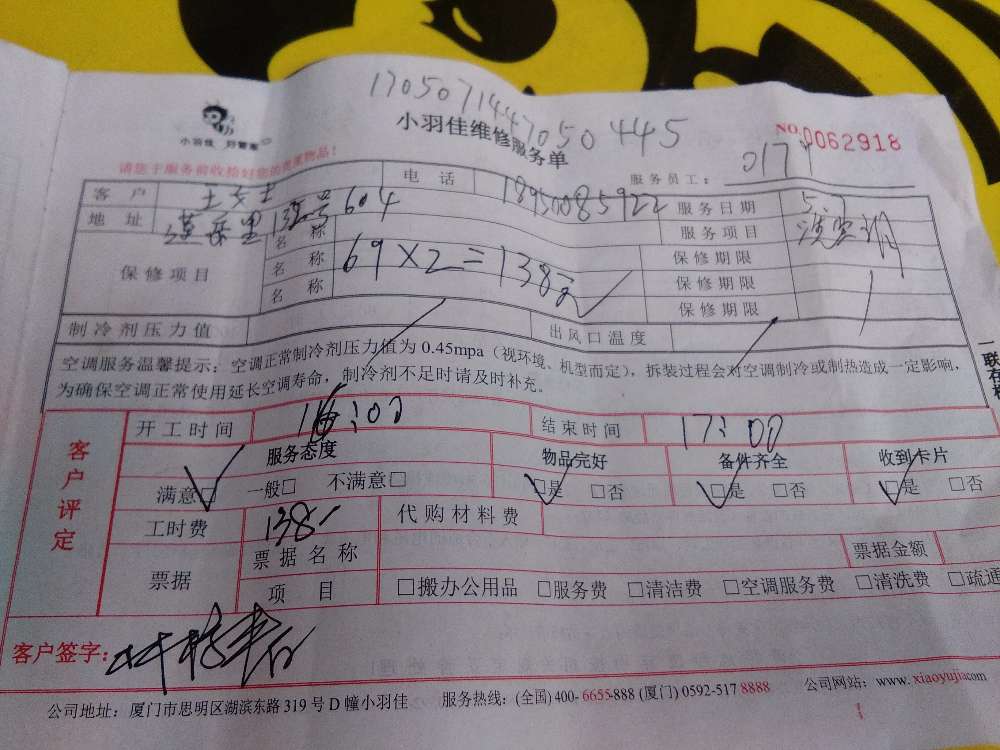 17050714447050445
小羽佳 好管家
小羽佳维修服务单
NO.0062918
请您于服务前收捡好您的贵重物品!
服务员工: 0174
客户 王女士 电话 18950085922 服务日期 5.7
地址 莲岳里132号604 服务项目
保修项目 名称 69×2=138元 保修期限
名称 保修期限
名称 保修期限
制冷剂压力值 出风口温度
空调服务温馨提示:空调正常制冷剂压力值为 0.45mpa(视环境、机型而定),拆装过程会对空调制冷或制热造成一定影响,
为确保空调正常使用延长空调寿命,制冷剂不足时请及时补充。
一联存根
客户评定
开工时间 16:00 结束时间 17:00
服务态度 物品完好 备件齐全 收到卡片
满意□ 一般□ 不满意□ □是 □否 □是 □否 □是 □否
工时费 138- 代购材料费
票据 票据名称 票据金额
项目 □搬办公用品 □服务费 □清洁费 □空调服务费 □清洗费 □疏通
客户签字:
公司地址:厦门市思明区湖滨东路 319 号 D 幢小羽佳 服务热线:(全国) 400-6655-888 (厦门) 0592-517 8888 公司网站:www.xiaoyujia.com